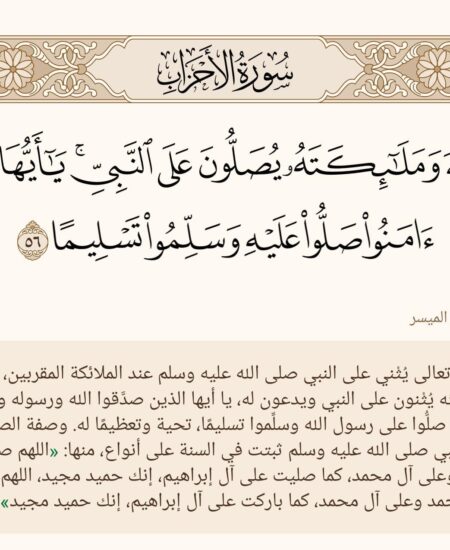 سُورَةُ الأَحْزَابِ
وَمَلَـٰٓئِكَتَهُۥ يُصَلُّونَ عَلَى ٱلنَّبِىِّ ۚ يَـٰٓأَيُّهَا
ءَامَنُوا۟ صَلُّوا۟ عَلَيْهِ وَسَلِّمُوا۟ تَسْلِيمًا ٥٦
الميسر
تعالى يُثني على النبي صلى الله عليه وسلم عند الملائكة المقربين،
يُثنون على النبي ويدعون له، يا أيها الذين صدَّقوا الله ورسوله
صلُّوا على رسول الله وسلِّموا تسليمًا، تحية وتعظيمًا له. وصفة
صلى الله عليه وسلم ثبتت في السنة على أنواع، منها: «اللهم
وعلى آل محمد، كما صليت على آل إبراهيم، إنك حميد مجيد، اللهم
وعلى آل محمد، كما باركت على آل إبراهيم، إنك حميد مجيد»